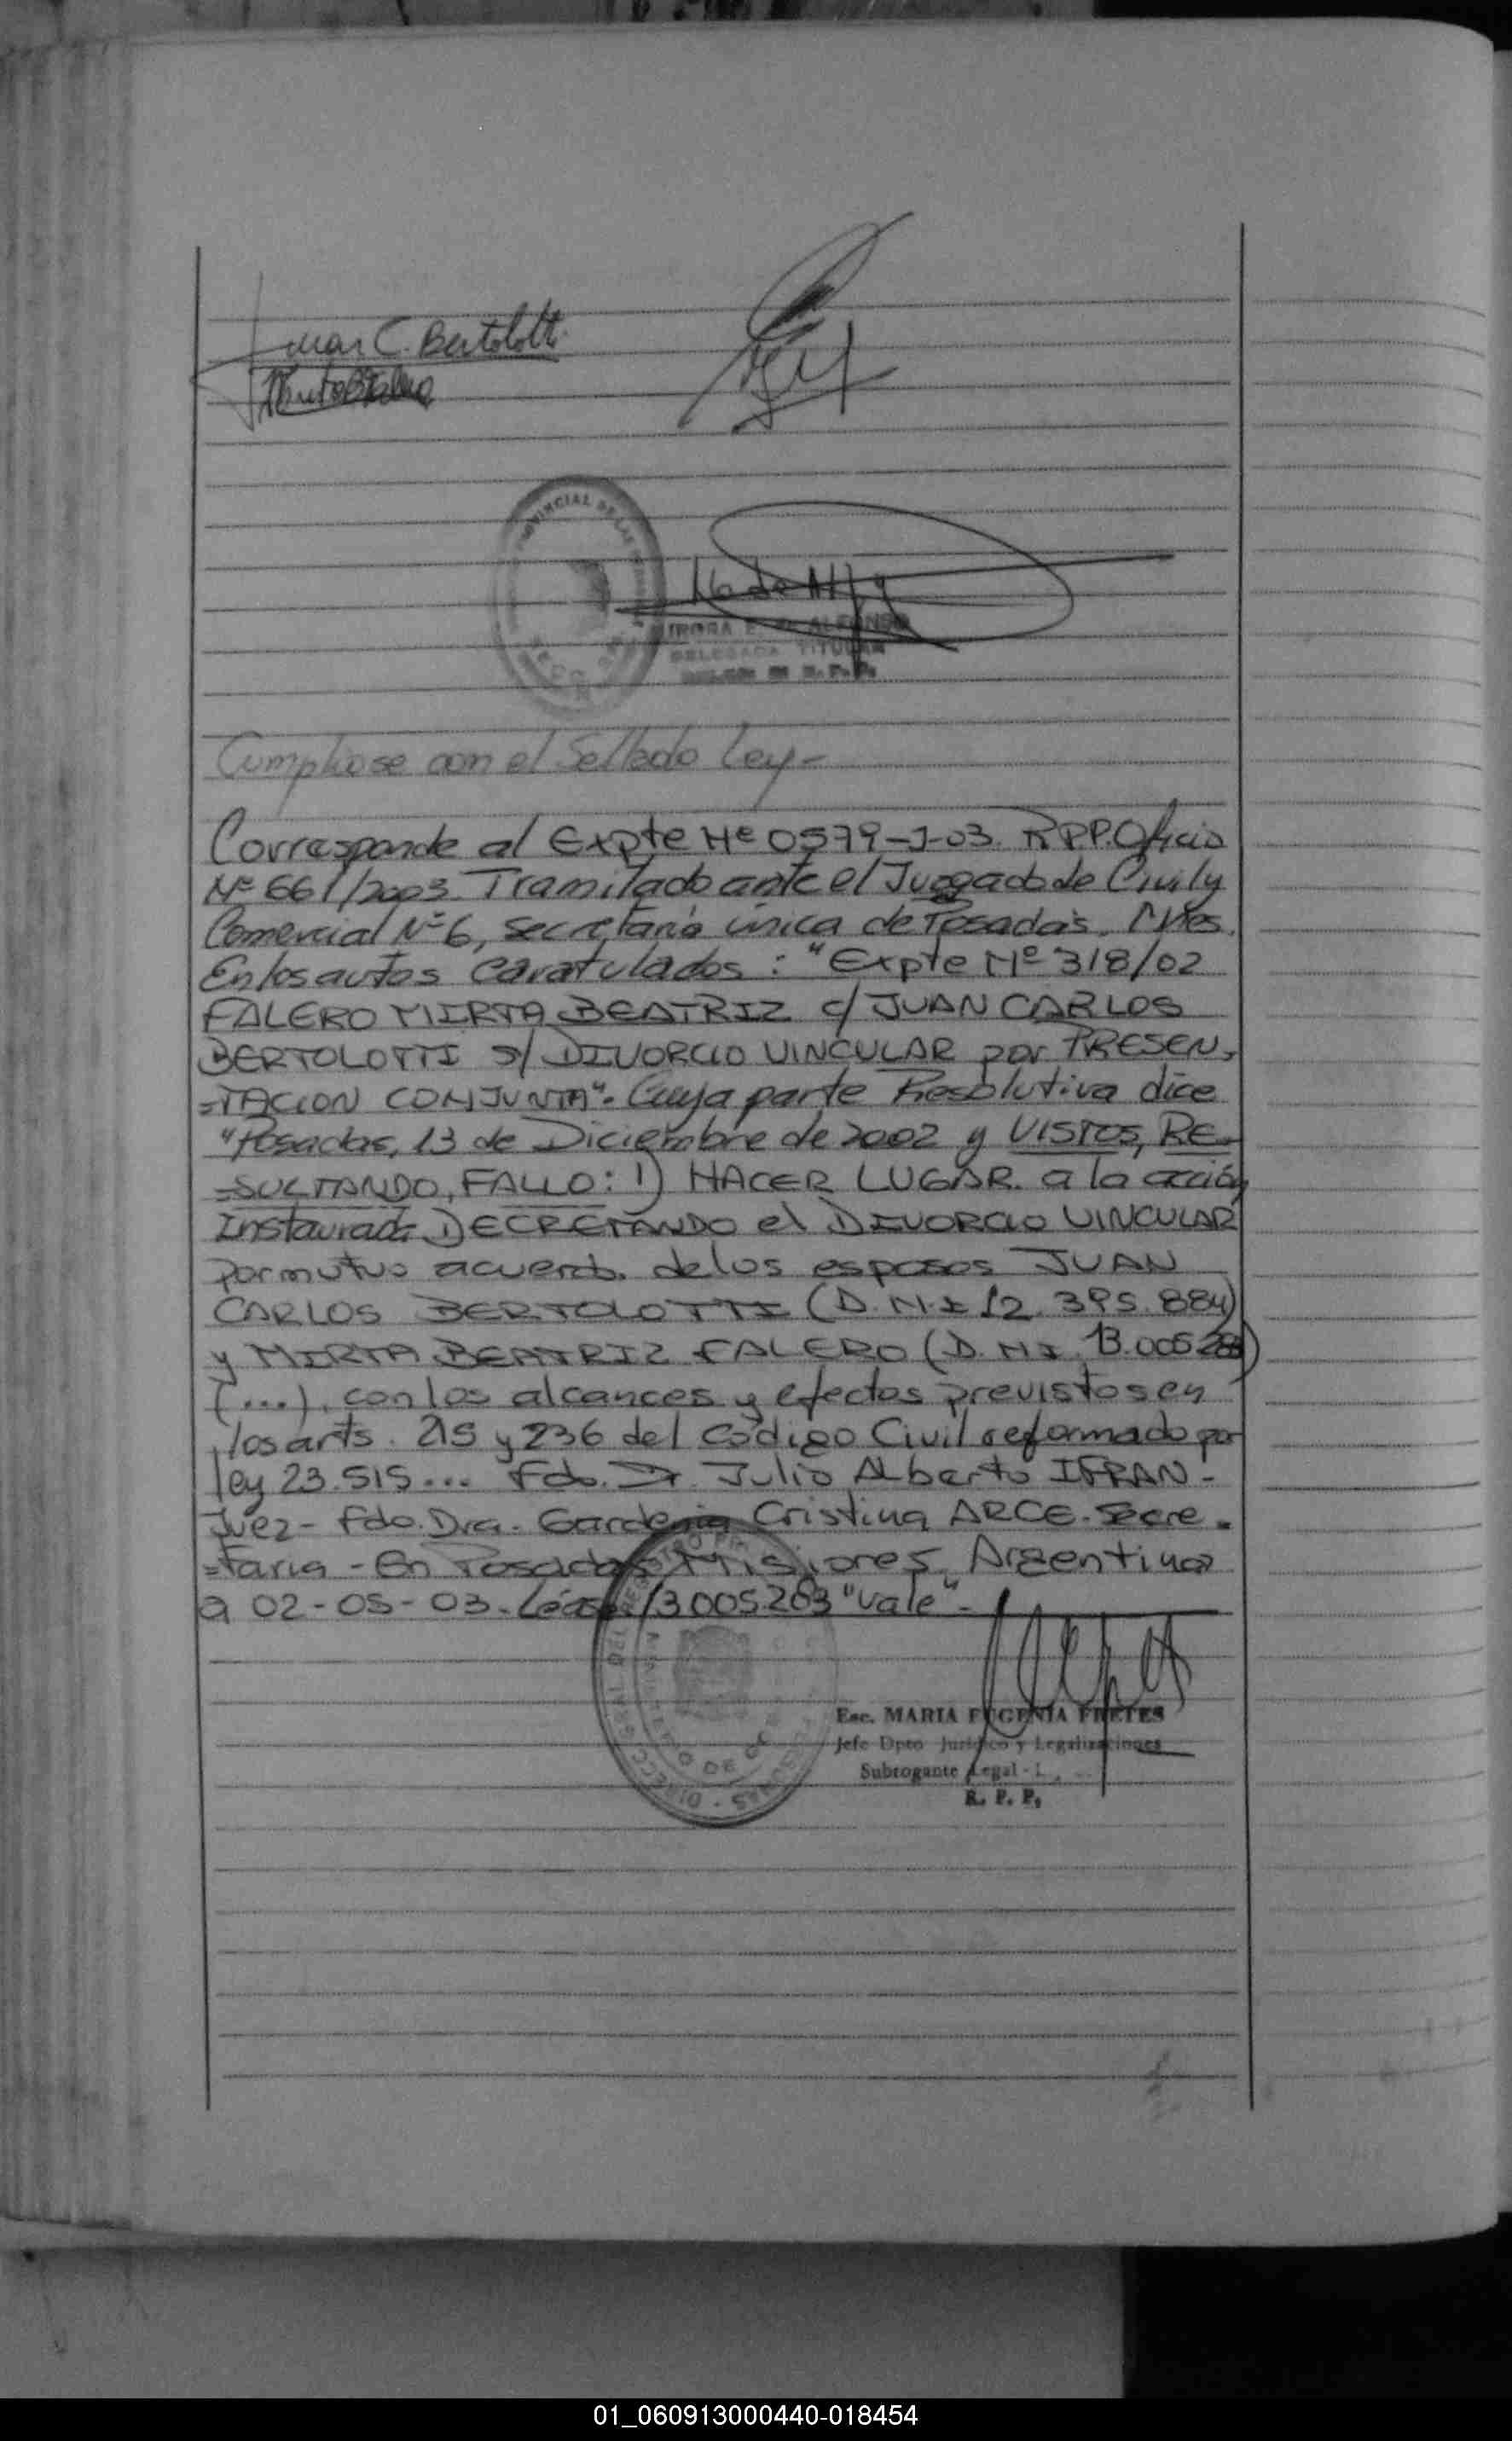 Juan C. Bertolotti
PROVINCIAL DE LAS
DELEGADA TITULAR
R. P. P.
Cumpliose con el Sellado Ley-
Corresponde al Expte Nº 0579-J-03. RPP. Oficio
Nº 661/2003. Tramitado ante el Juzgado de Civil y
Comercial Nº 6, secretaria única de Posadas. Mnes.
En los autos caratulados: "Expte Nº 318/02
FALERO MIRTA BEATRIZ c/ JUAN CARLOS
BERTOLOTTI s/ DIVORCIO VINCULAR por PRESEN-
=TACION CONJUNTA". Cuya parte Resolutiva dice
"Posadas, 13 de Diciembre de 2002 y VISTOS, RE-
=SULTANDO, FALLO: 1) HACER LUGAR. a la acción
Instaurada DECRETANDO el DIVORCIO VINCULAR
por mutuo acuerdo. de los esposos JUAN
CARLOS BERTOLOTTI (D.N.I 12.395.884)
y MIRTA BEATRIZ FALERO (D.NI. 13.005.
(...), con los alcances y efectos previstos en
los arts. 215 y 236 del código Civil reformado por
ley 23.515... Fdo. Dr. Julio Alberto IFRAN-
Juez- Fdo. Dra. Gardenia Cristina ARCE. Secre-
=taria - En Posadas Misiones, Argentina
a 02-05-03. Léase: 13005263 "vale"-
Esc. MARIA EUGENIA FRETES
Jefe Dpto Jurídico y Legalizaciones
Subrogante Legal -
R. P. P.
01_060913000440-018454